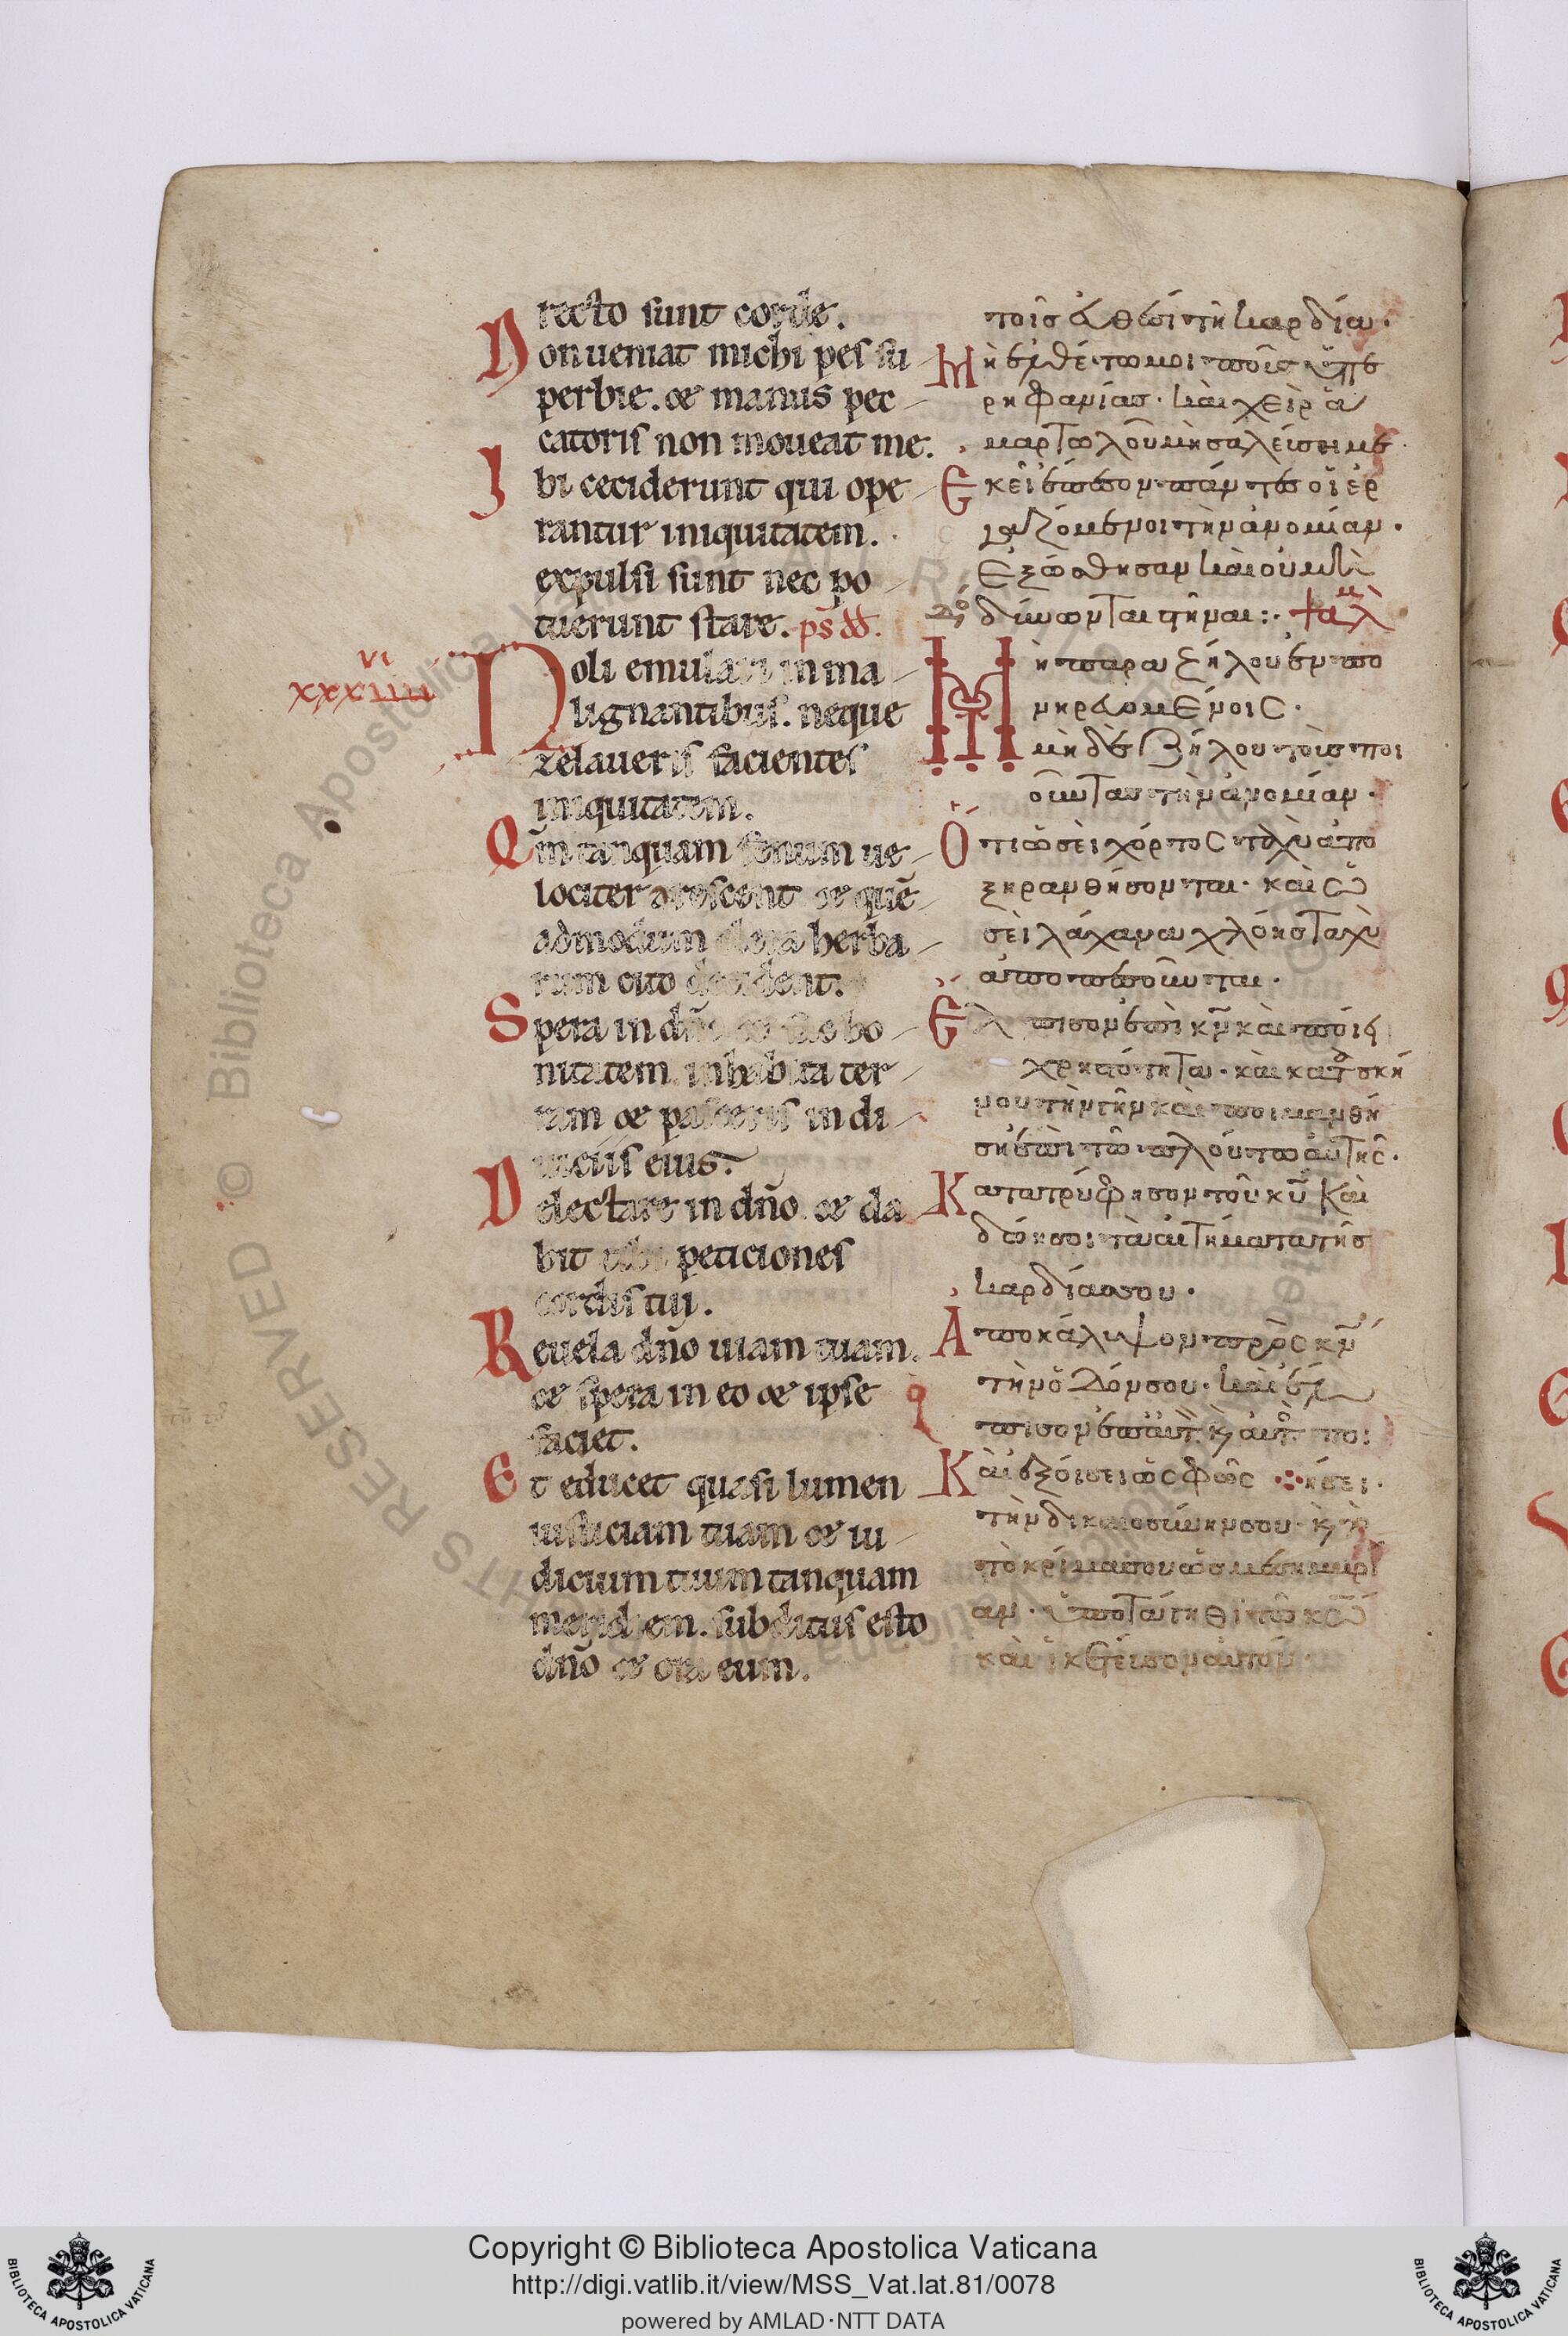 recto sunt corde.
Non ueniat michi pes su
perbie. et manus pec
catoris non moueat me.
Ibi ceciderunt qui ope
rantur iniquitatem.
expulsi sunt nec po
tuerunt stare. ps̄ dd̄.
VI
XXXVI
Noli emulari in ma
lignantibus. neque
zelaueris facientes
iniquitatem.
Qm̄ tanquam fenum ue
lociter arescent et quē
admodum olera herba
rum cito decident.
Spera in dn̄o et fac bo
nitatem. inhabita ter
ram et pasceris in di
uiciis eius.
Delectare in dn̄o. et da
bit tibi peticiones
cordis tui.
Reuela dn̄o uiam tuam.
et spera in eo et ipse
faciet.
Et educet quasi lumen
iusticiam tuam et iu
dicium tuum tanquam
meridiem. subditus esto
dn̄o et ora eum.
τοῖσ ἐυθέσι τῆ καρδία.
Μὴ ἐλθέτω μοι ποῦσ ὑπε
ρηφανίασ. καὶ χεὶρ ἁ
μαρτωλοῦ μὴ σαλεύσει με.
Ἐκεῖ ἔπεσον πάντεσ οἱ ἐρ
γαζόμενοι τὴν ἀνομίαν.
Ἐξώσθησαν καὶ οὐ μὴ
δύνωνται στῆναι:.
Μὴ παραζήλου ἐν πο
νηρευομένοις.
μὴ δὲ ζήλου τοὺσ ποι
οῦντασ τὴν ἀνομίαν.
Ὅτι ὡσεὶ χόρτος ταχὺ ἀπο
ξηρανθήσονται. καὶ ὡ
σεὶ λάχανα χλόησ ταχὺ
ἀποπεσοῦνται.
Ἔλπισον ἐπὶ κν̄ καὶ ποίει
χρηστότητα. καὶ κατασκή
νου τὴν γῆν καὶ ποιμανθή
ση ἐπὶ τῶ πλούτω αὐτῆς.
Κατατρύφησον τοῦ κῡ καὶ
δώη σοι τὰ αἰτήματα τῆσ
καρδίασ σου.
Ἀποκάλυψον πρὸς κν̄
τὴν ὁδόν σου. καὶ ἔλ
πισον ἐπ' αὐτ καὶ αὐτὸς ποι
ήσει.
Καὶ ἐξοίσει ὡς φῶς
τὴν δικαιοσύνην σου. καὶ
τὸ κρίμα σου ὡσ μεσημβρί
αν. ὑποτάγηθι τῶ κω̄
καὶ ἱκέτευσον αὐτόν.
RESERVED © Biblioteca Apostolica
Copyright © Biblioteca Apostolica Vaticana
http://digi.vatlib.it/view/MSS_Vat.lat.81/0078
powered by AMLAD·NTT DATA
BIBLIOTECA APOSTOLICA VATICANA
BIBLIOTECA APOSTOLICA VATICANA